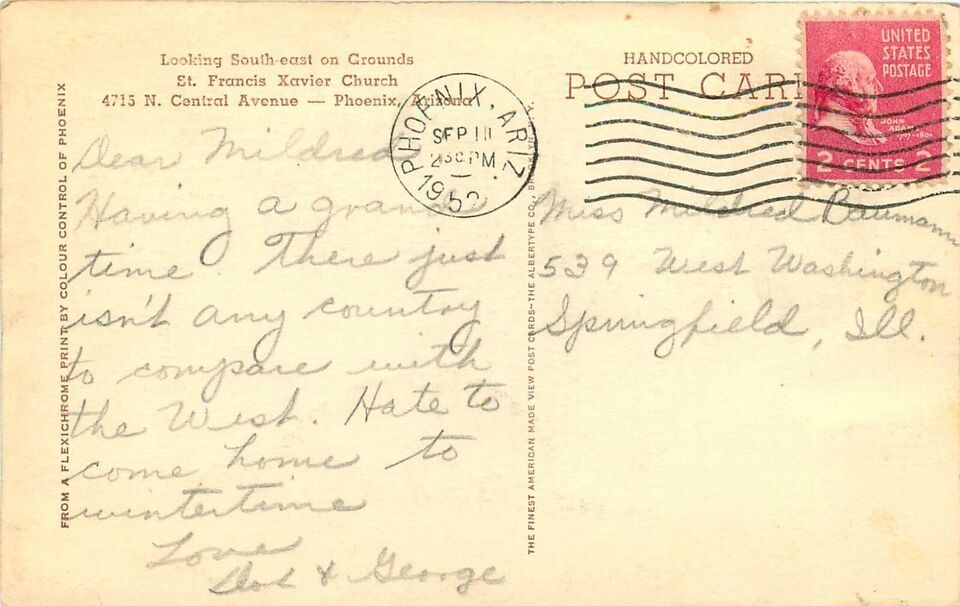 Looking South-east on Grounds
St. Francis Xavier Church
4715 N. Central Avenue — Phoenix, Arizona
HANDCOLORED
POST CARD
UNITED
STATES
POSTAGE
JOHN
ADAMS
1797-1801
2 CENTS 2
PHOENIX, ARIZ.
SEP 11
2 30 PM
FROM A FLEXICHROME PRINT BY COLOUR CONTROL OF PHOENIX
Dear Mildred
Having a grande
time. There just
isn't any country
to compare with
the West. Hate to
come home to
wintertime
Love
Dot & George
THE FINEST AMERICAN MADE VIEW POST CARDS—THE ALBERTYPE CO.,
Miss Mildred Baumann
539 West Washington
Springfield, Ill.